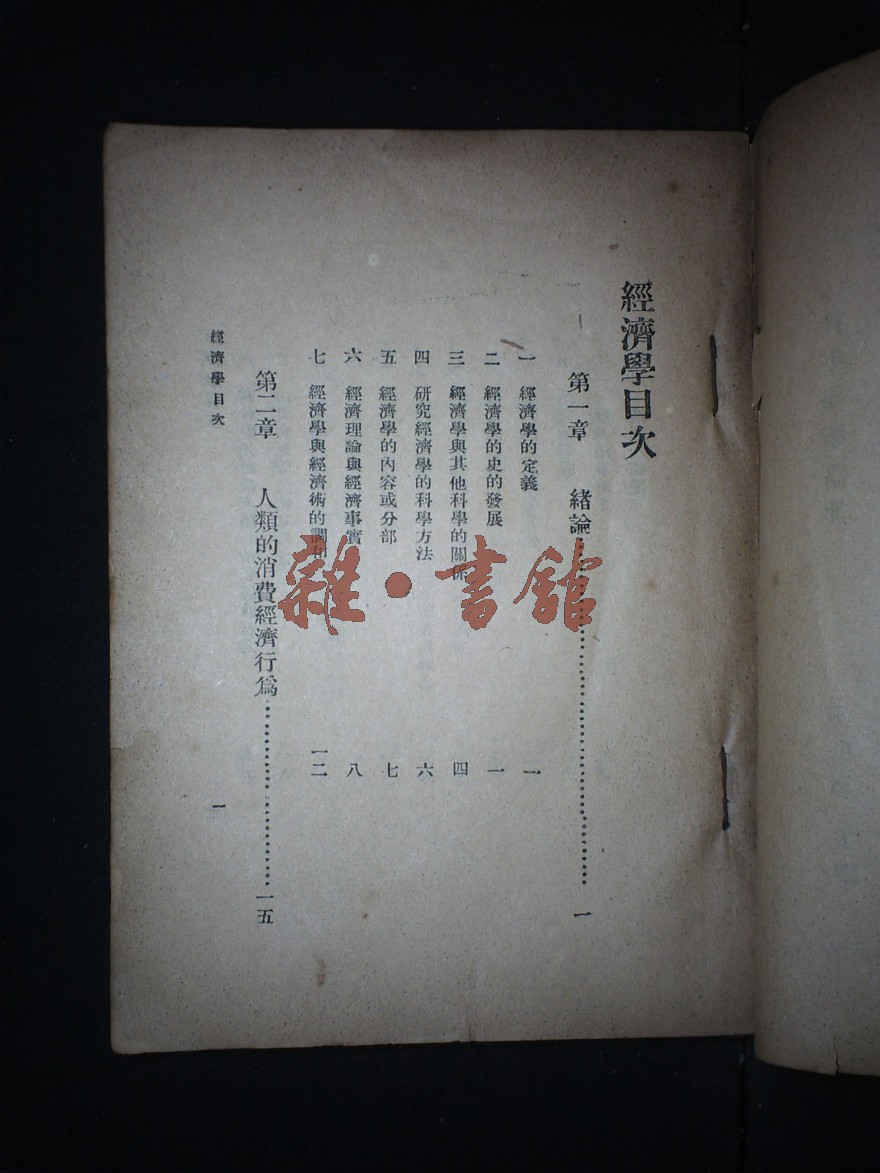 經濟學目次
第一章 緒論……………………一
一 經濟學的定義 一
二 經濟學的史的發展 一
三 經濟學與其他科學的關係 四
四 研究經濟學的科學方法 六
五 經濟學的內容或分部 七
六 經濟理論與經濟事實 八
七 經濟學與經濟術的調和 一二
第二章 人類的消費經濟行爲……………………一五
經濟學目次
一
雜·書館